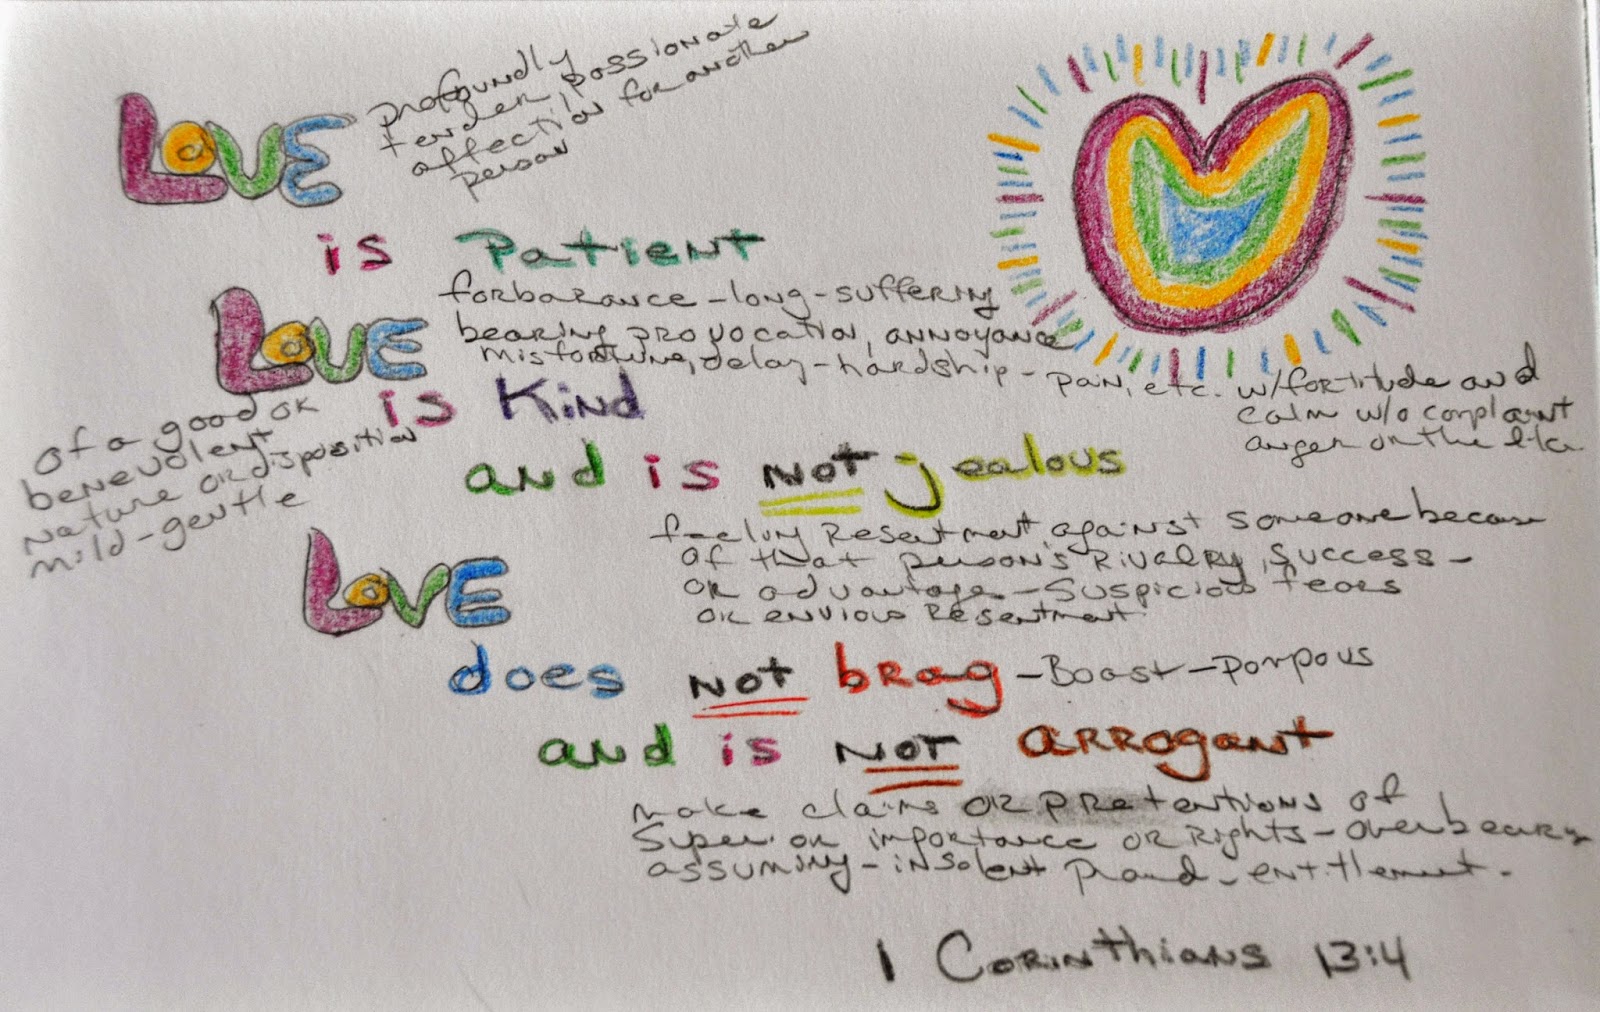 LOVE
profoundly
tender, passionate
affection for another
person
is Patient
forbarance - long - suffering
bearing provocation, annoyance
misfortune, delay - hardship - pain, etc. w/fortitude and
calm w/o complaint
anger or the like
LOVE
is Kind
of a good or
benevolent
nature or disposition
mild - gentle
and is NOT jealous
feeling Resentment against someone because
of that person's Rivalry, success -
or advantage - Suspicious fears
or envious Resentment.
LOVE
does NOT brag - Boast - Pompous
and is NOT arrogant
make claims or pretentions of
Superior importance or Rights - overbearing
assuming - insolent proud - entitlement.
1 Corinthians 13:4